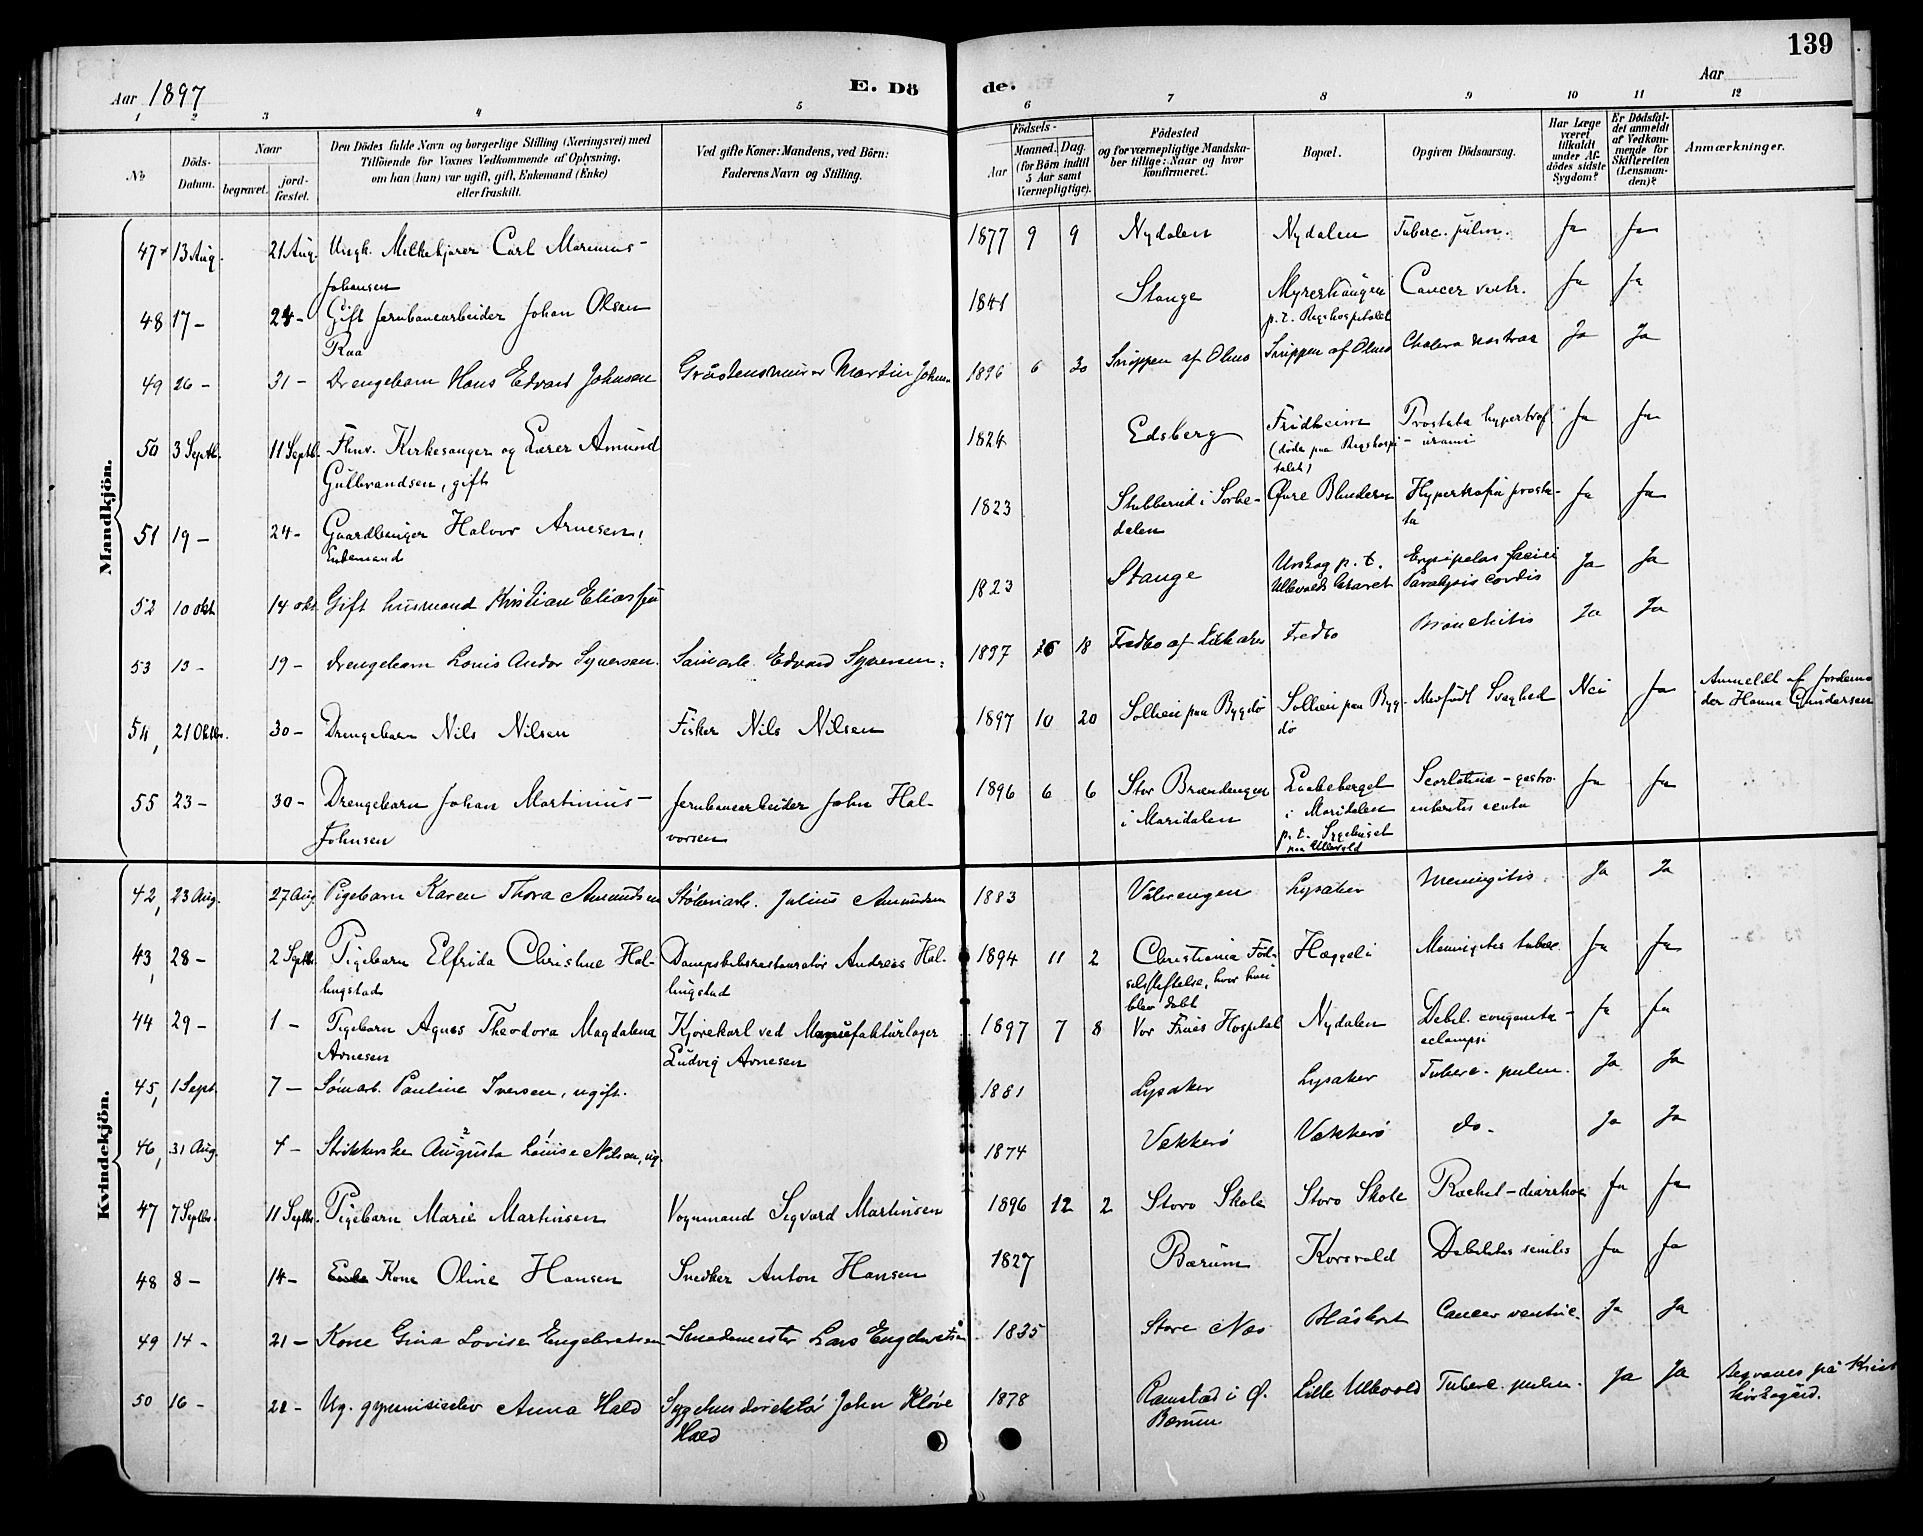 139
Aar 1897
E. Dö
de.
Aar
1 2 3 4 5 6 7 8 9 10 11 12
No
Döds-Datum.
Naar
begravet.
jord-fæstet.
Den Dödes fulde Navn og borgerlige Stilling (Næringsvei) med
Tilföiende for Voxnes Vedkommende af Oplysning,
om han (hun) var ugift, gift, Enkemand (Enke)
eller fraskilt.
Ved gifte Koner: Mandens, ved Börn:
Faderens Navn og Stilling.
Födsels-
Aar
Maaned. Dag.
(for Börn indtil
5 Aar samt
Værnepligtige).
Födested
og for værnepligtige Mandska-
ber tillige: Naar og hvor
konfirmeret.
Bopæl.
Opgiven Dödsaarsag.
Har Læge
været
tilkaldt
under Af-
dödes sidste
Sygdom?
Er Dödsfal-
det anmeldt
af Vedkom-
mende for
Skifteretten
(Lensman-
den)?
Anmærkninger.
Mandkjön.
47 13 Aug. 21 Aug. Ungk. Melkekjører Carl Marenius 1877 9 9 Nydalen Nydalen Tuberc. pulm. Ja Ja
Johansen
48 17 – 24 – Gift Jernbanearbeider Johan Olsen 1841 Stange Myrerhaugen Cancer ventr. Ja Ja
Raa p. t. Rigshospitalet
49 26 – 31 – Drengebarn Hans Edvard Johnsen Gråstensmurer Martin Johnsen 1896 6 30 Snippen af Olmo Snippen af Olmo Cholera nostras Ja Ja
50 3 Septb. 11 Septb. Fhnv. Kirkesanger og Lærer Amund 1824 Edsberg Fridheim Prostata hypertrof Ja Ja
Gulbrandsen, gift (døde paa Rigshospi- – urämi
talet)
51 19 – 24 – Gaardbruger Halvor Arnesen, 1823 Stubberud i Sørke- Øvre Blindern Hypertrofia prosta- Ja Ja
Enkemand dalen ta
52 10 okt 14 okt Gift husmand Kristian Eliassen 1823 Stange Urskog p. t. Erysipelas faciei Ja Ja
Ullevolds Lazaret Paralysis cordis
53 13 – 19 – Drengebarn Louis Andor Syversen. Edvard Syversen. 1897 18 Fredbo af Fredbo Bronchitis Ja Ja
54, 21 Oktbr. 30 – Drengebarn Nils Nilsen Fisker Nils Nilsen 1897 10 20 Solhein paa Bygdø Solhein paa Byg- Medfødt Svaghed Nei Ja Anmeldt af Jordemo
dø der Hanna Gundersen
55 23 – 30 – Drengebarn Johan Martinius Jernbanearbeider John Hal- 1896 6 6 Stor Brændengen Laakeberget Scarlatina – gastro- Ja Ja
Johnsen vorsen i Maridalen i Maridalen enterites acuta
p. t. Sygehuset
paa Ullevold
Kvindekjön.
42, 23 Aug. 27 Aug Pigebarn Karen Thora Amundsen Støberiarb. Julius Amundsen 1883 Vålerengen Lysaker Meningitis. Ja Ja
43, 28 – 2 Septbr. Pigebarn Elfrida Christine Hal- Dampskibsrestauratør Andreas Hal- 1894 11 2 Christiania Fød- Hæggeli Meningites tuberc. Ja Ja
lingstad lingstad selsstiftelse, hvor hun
blev døbt
44 29 – 1 – Pigebarn Agnes Theodora Magdalena Kjørekarl ved Manufakturlager 1897 7 8 Vor Frues Hospital Nydalen Debil. congenita – Ja Ja
Arnesen Ludvig Arnesen eclampsi
45, 1 Sept. 7 – Sømarb. Pauline Iversen, ugift. 1881 Lysaker Lysaker Tuberc. pulm. Ja Ja
46, 31 Aug. 4 – Strikkerske Augusta Louise Nilsen, ug. 1874 Vækkerø Vækkerø do. Ja Ja
47 7 Septbr. 11 Septbr. Pigebarn Marie Martinsen Vognmand Sigvard Martinsen 1896 12 2 Storo Skole Storo Skole Rachit – diarrhoe Ja Ja
48 8 – 14 – Kone Oline Hansen Snedker Anton Hansen 1827 Bærum Korsvold Debilitas senilis Ja Ja
49 14 – 21 – Kone Gina Lovise Engebretsen Smedmester Lars Engebretsen 1835 Store Næs Blåskort Cancer ventric. Ja Ja
50 16 – 21 – Ug. gymnasieelev Anna Hald Sygehusdirektør John Kløve 1878 Ramstad i Ø. Lille Ullevold Tuberc. pulm. Ja Ja Begraves på Krist
Hald Bærum kirkegård.